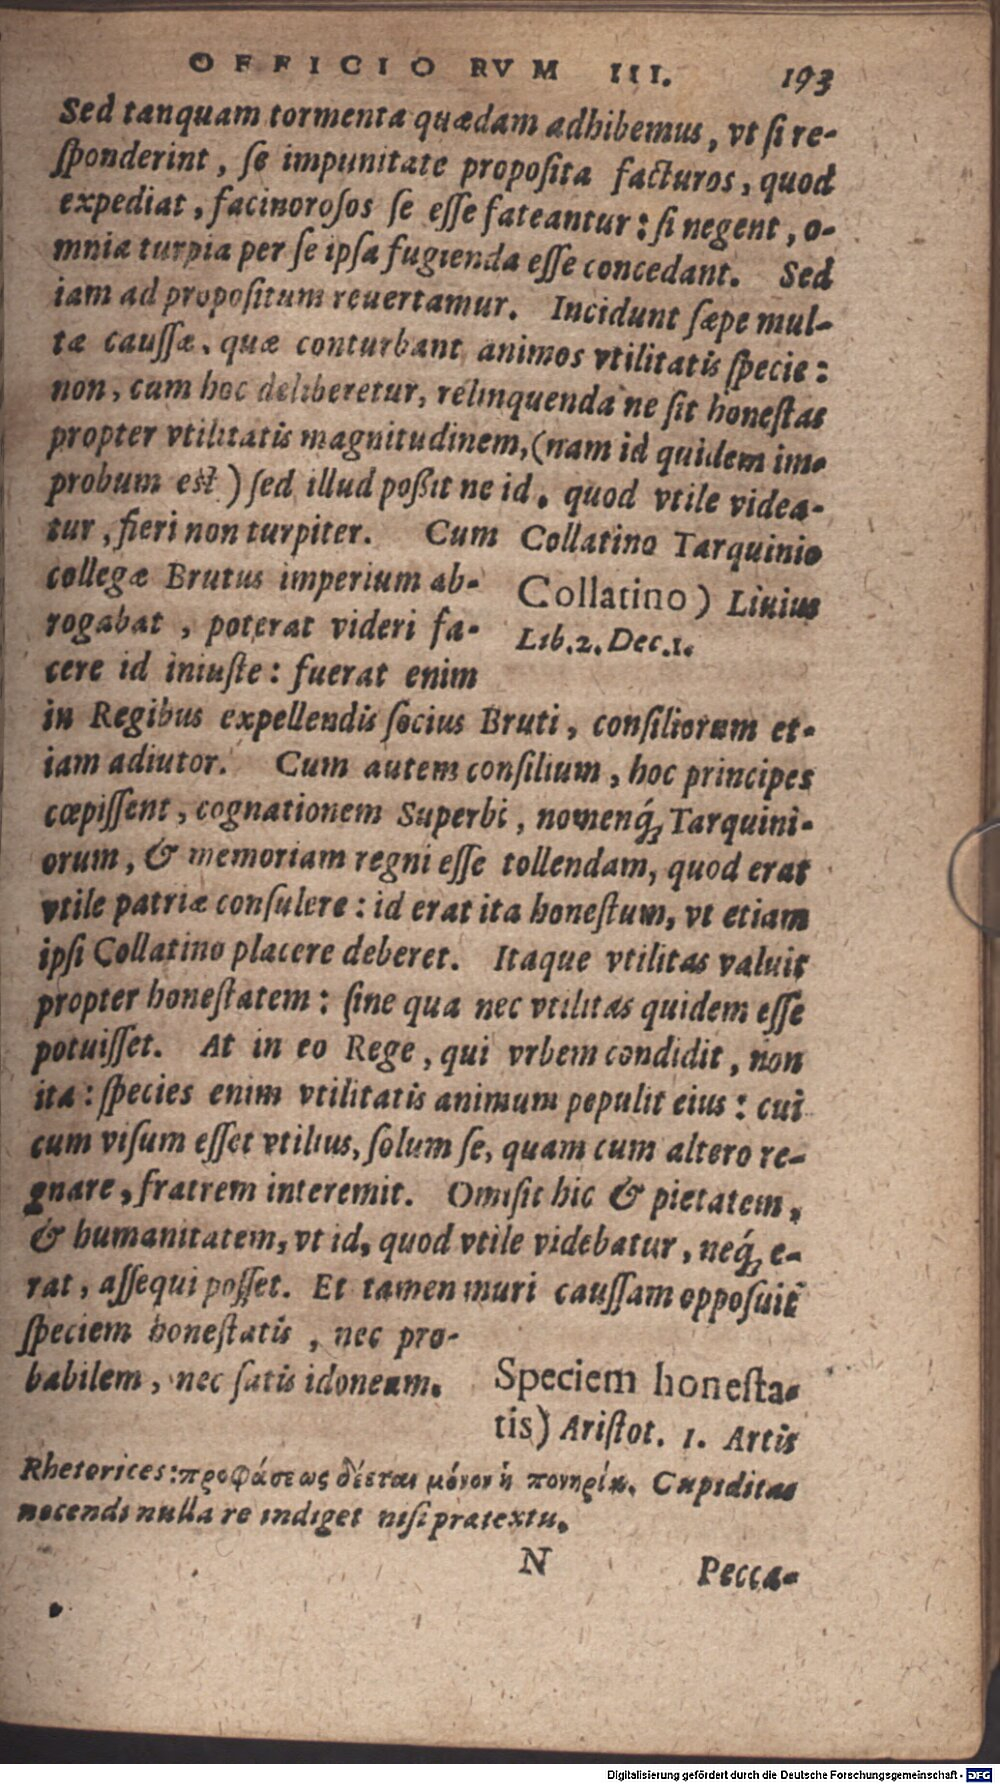 OFFICIORVM III. 193
Sed tanquam tormenta quædam adhibemus, vt si re-
sponderint, se impunitate proposita facturos, quod
expediat, facinorosos se esse fateantur: si negent, o-
mnia turpia per se ipsa fugienda esse concedant. Sed
iam ad propositum reuertamur. Incidunt sæpe mul-
tæ caussæ, quæ conturbant animos vtilitatis specie:
non, cum hoc deliberetur, relinquenda ne sit honestas
propter vtilitatis magnitudinem, (nam id quidem im-
probum est) sed illud poßit ne id, quod vtile videa-
tur, fieri non turpiter. Cum Collatino Tarquinio
collegæ Brutus imperium ab-
rogabat, poterat videri fa-
cere id iniuste: fuerat enim
Collatino) Liuius
Lib.2. Dec.1.
in Regibus expellendis socius Bruti, consiliorum et-
iam adiutor. Cum autem consilium, hoc principes
cœpissent, cognationem Superbi, nomenq́; Tarquini-
orum, & memoriam regni esse tollendam, quod erat
vtile patriæ consulere: id erat ita honestum, vt etiam
ipsi Collatino placere deberet. Itaque vtilitas valuit
propter honestatem: sine qua nec vtilitas quidem esse
potuisset. At in eo Rege, qui vrbem condidit, non
ita: species enim vtilitatis animum pepulit eius: cui
cum visum esset vtilius, solum se, quam cum altero re-
gnare, fratrem interemit. Omisit hic & pietatem,
& humanitatem, vt id, quod vtile videbatur, neq́; e-
rat, assequi posset. Et tamen muri caussam opposuit
speciem honestatis, nec pro-
babilem, nec satis idoneam.
Speciem honesta-
tis) Aristot. 1. Artis
Rhetorices: προφάσεως δέεται μόνον ἡ πονηρία. Cupiditas
nocendi nulla re indiget nisi prætextu.
N Pecca-
Digitalisierung gefördert durch die Deutsche Forschungsgemeinschaft - DFG